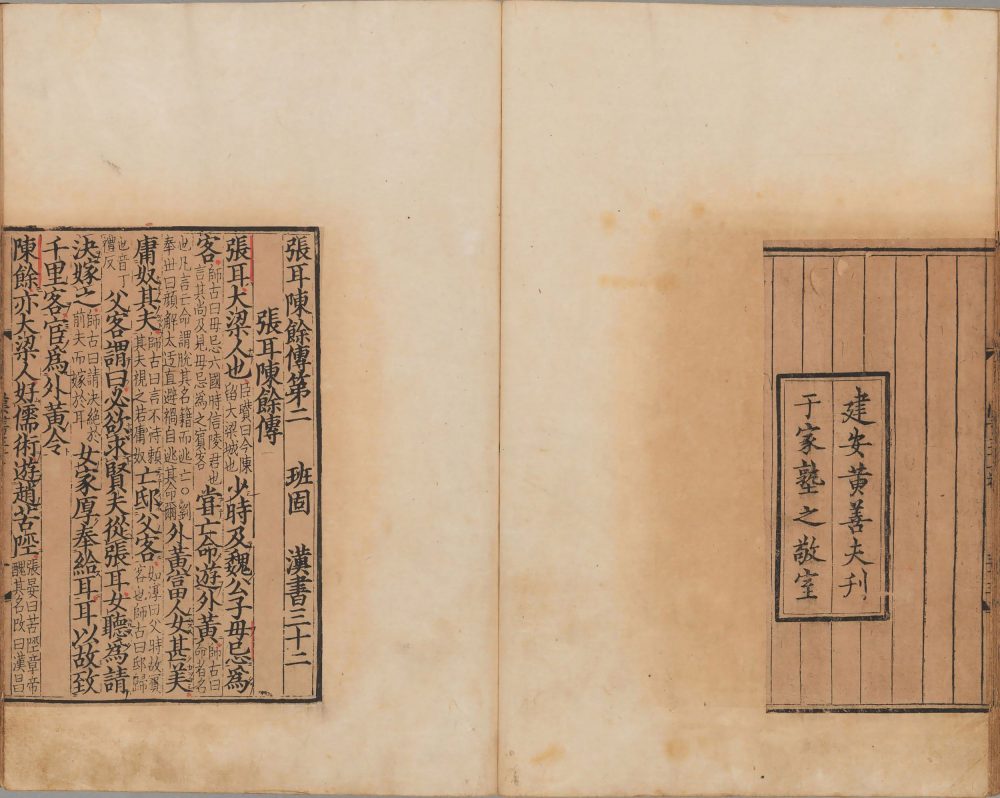 建安黃善夫刊
于家塾之敬室
張耳陳餘傳第二 班固 漢書三十二
張耳陳餘傳
張耳大梁人也臣瓚曰今陳留大梁城也少時及魏公子毋忌爲
客師古曰毋忌六國時信陵君也言其尚及見毋忌爲之賓客甞亡命遊外黃師古曰命者名
也凡言亡命謂脫其名籍而逃亡○劉奉世曰顏解太迂直避禍自逃其命爾外黃富人女甚美
庸奴其夫師古曰言不恃賴其夫視之若庸奴亡邸父客如淳曰父時故賓客也師古曰邸歸
也音丁禮反父客謂曰必欲求賢夫從張耳女聽爲請
決嫁之師古曰請決絕於前夫而嫁於耳女家厚奉給耳耳以故致
千里客宦爲外黃令
陳餘亦大梁人好儒術遊趙苦陘張晏曰苦陘章帝醜其名改曰漢昌